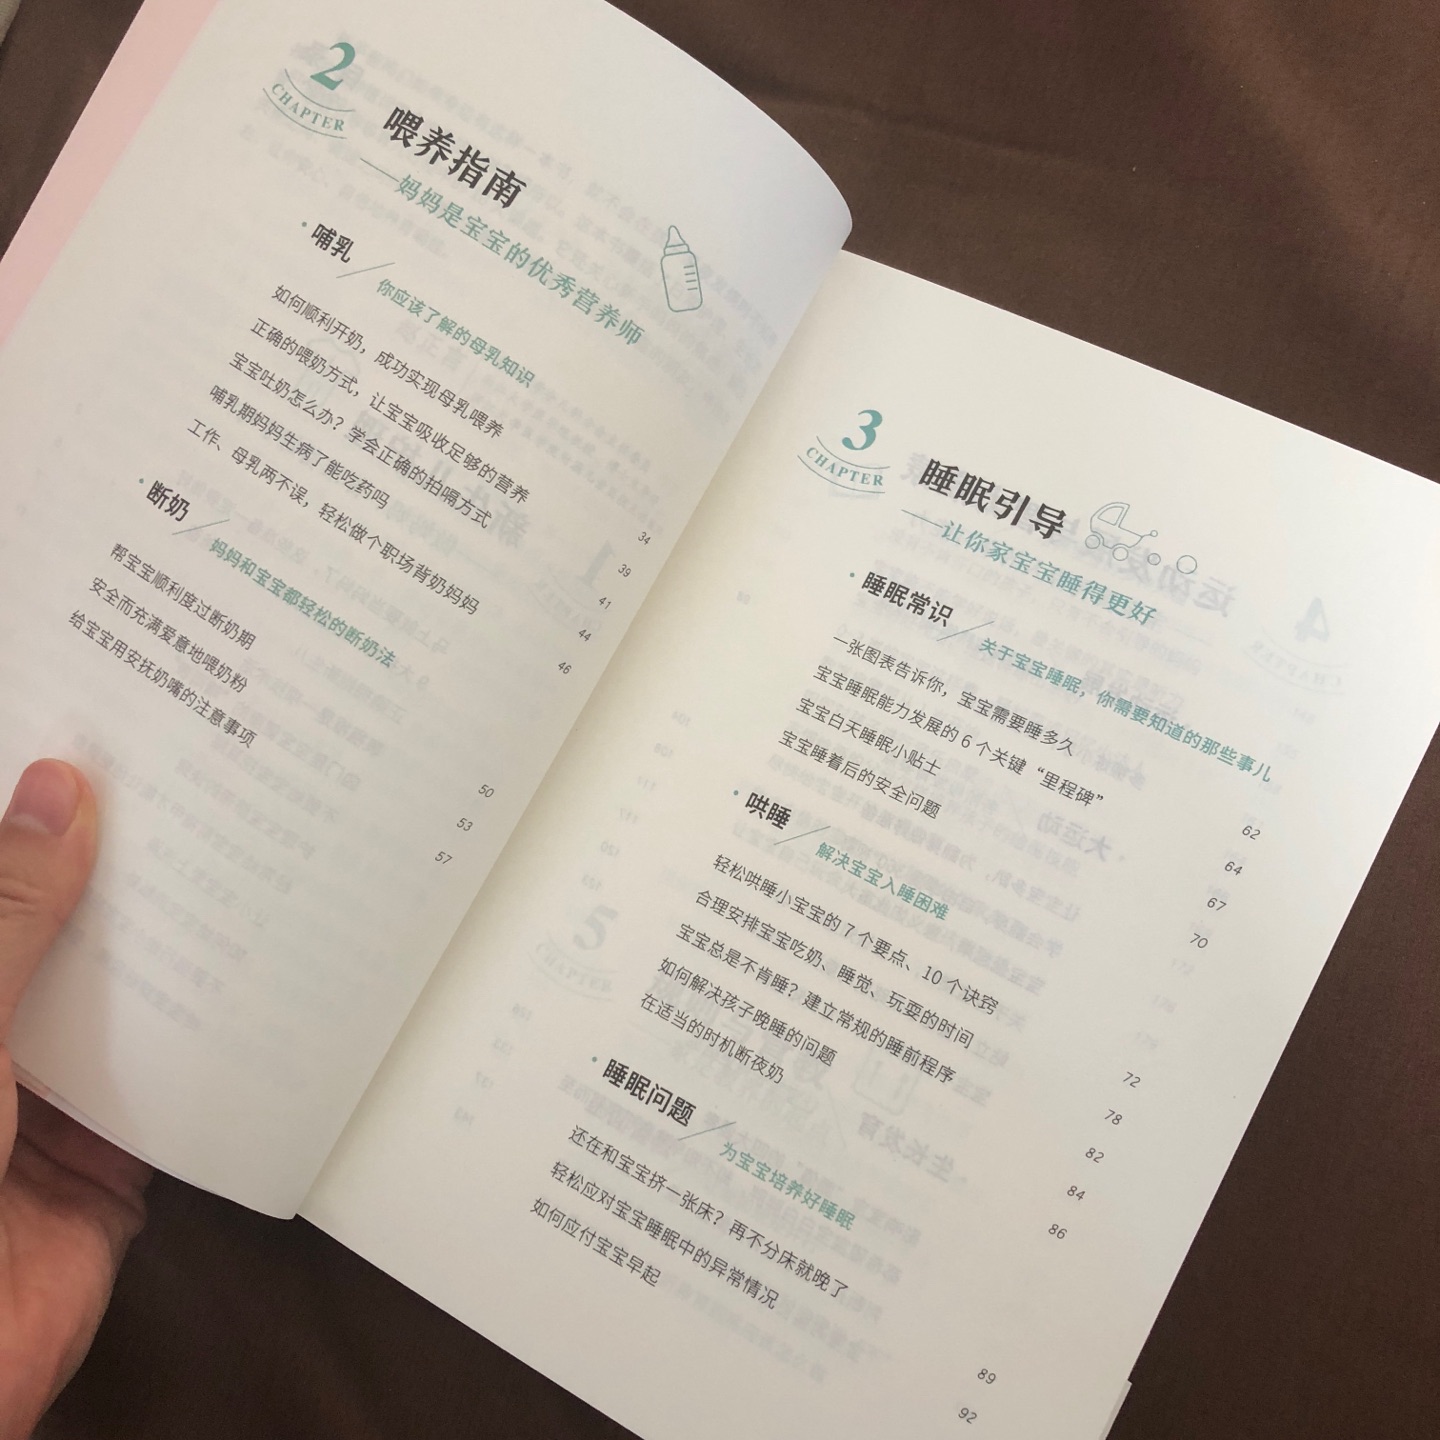 2
CHAPTER
喂养指南
——妈妈是宝宝的优秀营养师
·哺乳
你应该了解的母乳知识
如何顺利开奶，成功实现母乳喂养 34
正确的喂奶方式，让宝宝吸收足够的营养 39
宝宝吐奶怎么办？学会正确的拍嗝方式 41
哺乳期妈妈生病了能吃药吗 44
工作、母乳两不误，轻松做个职场背奶妈妈 46
·断奶
妈妈和宝宝都轻松的断奶法
帮宝宝顺利度过断奶期 50
安全而充满爱意地喂奶粉 53
给宝宝用安抚奶嘴的注意事项 57
3
CHAPTER
睡眠引导
——让你家宝宝睡得更好
·睡眠常识
关于宝宝睡眠，你需要知道的那些事儿
一张图表告诉你，宝宝需要睡多久 62
宝宝睡眠能力发展的 6 个关键“里程碑” 64
宝宝白天睡眠小贴士 67
宝宝睡着后的安全问题 70
·哄睡
解决宝宝入睡困难
轻松哄睡小宝宝的 7 个要点、10 个诀窍 72
合理安排宝宝吃奶、睡觉、玩耍的时间 78
宝宝总是不肯睡？建立常规的睡前程序 82
如何解决孩子晚睡的问题 84
在适当的时机断夜奶 86
·睡眠问题
为宝宝培养好睡眠
还在和宝宝挤一张床？再不分床就晚了 89
轻松应对宝宝睡眠中的异常情况 92
如何应付宝宝早起